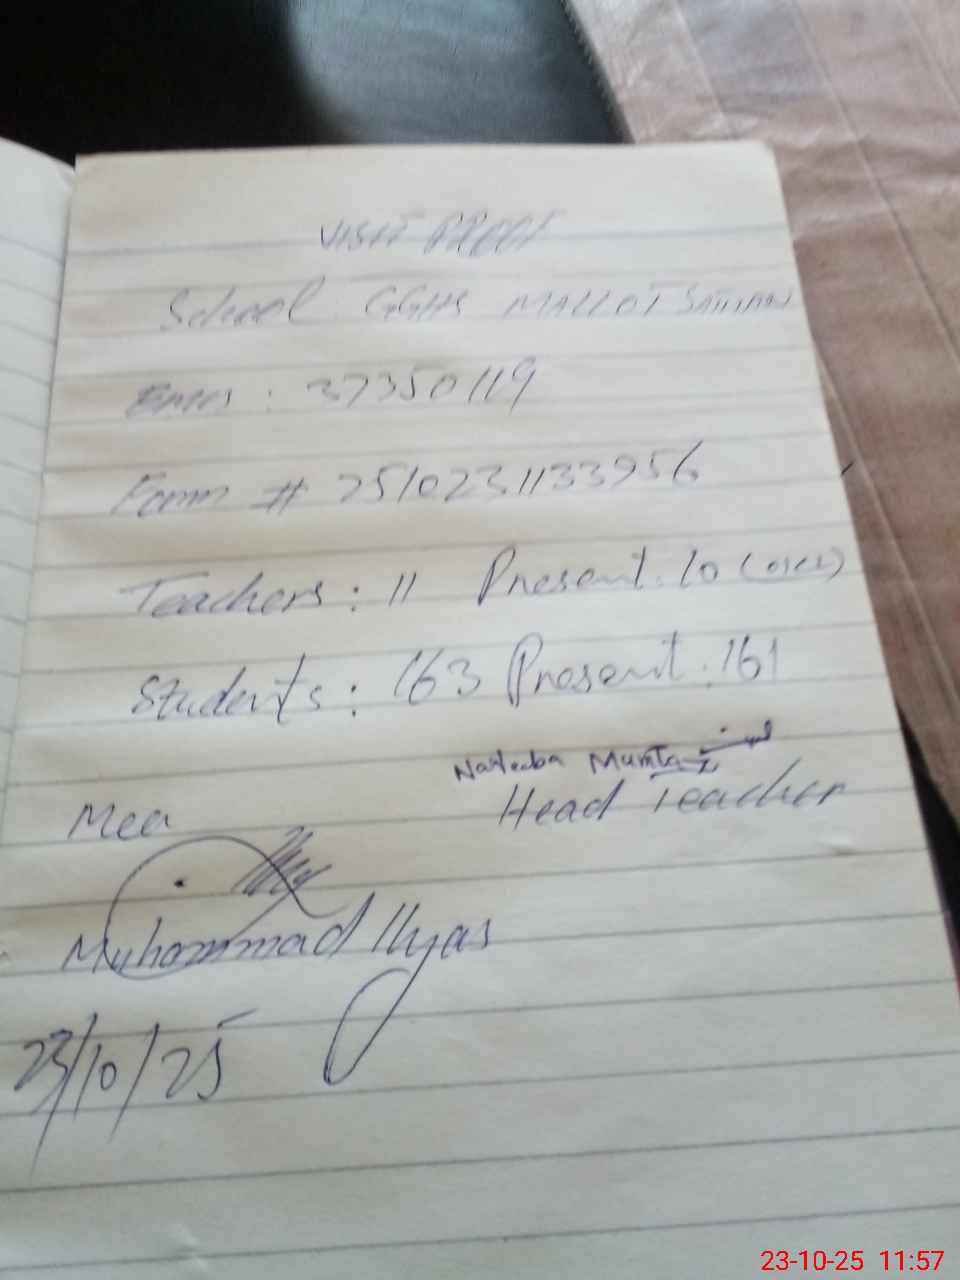 VISIT PROOF
School GGHS MALLOT SATTIAN
EMIS : 37350119
Form # 2510231133956
Teachers : 11 Present : 10 (01CL)
Students : 163 Present : 161
Mumtaz
Mea Head Teacher
Muhammad Ilyas
23/10/25
23-10-25 11:57